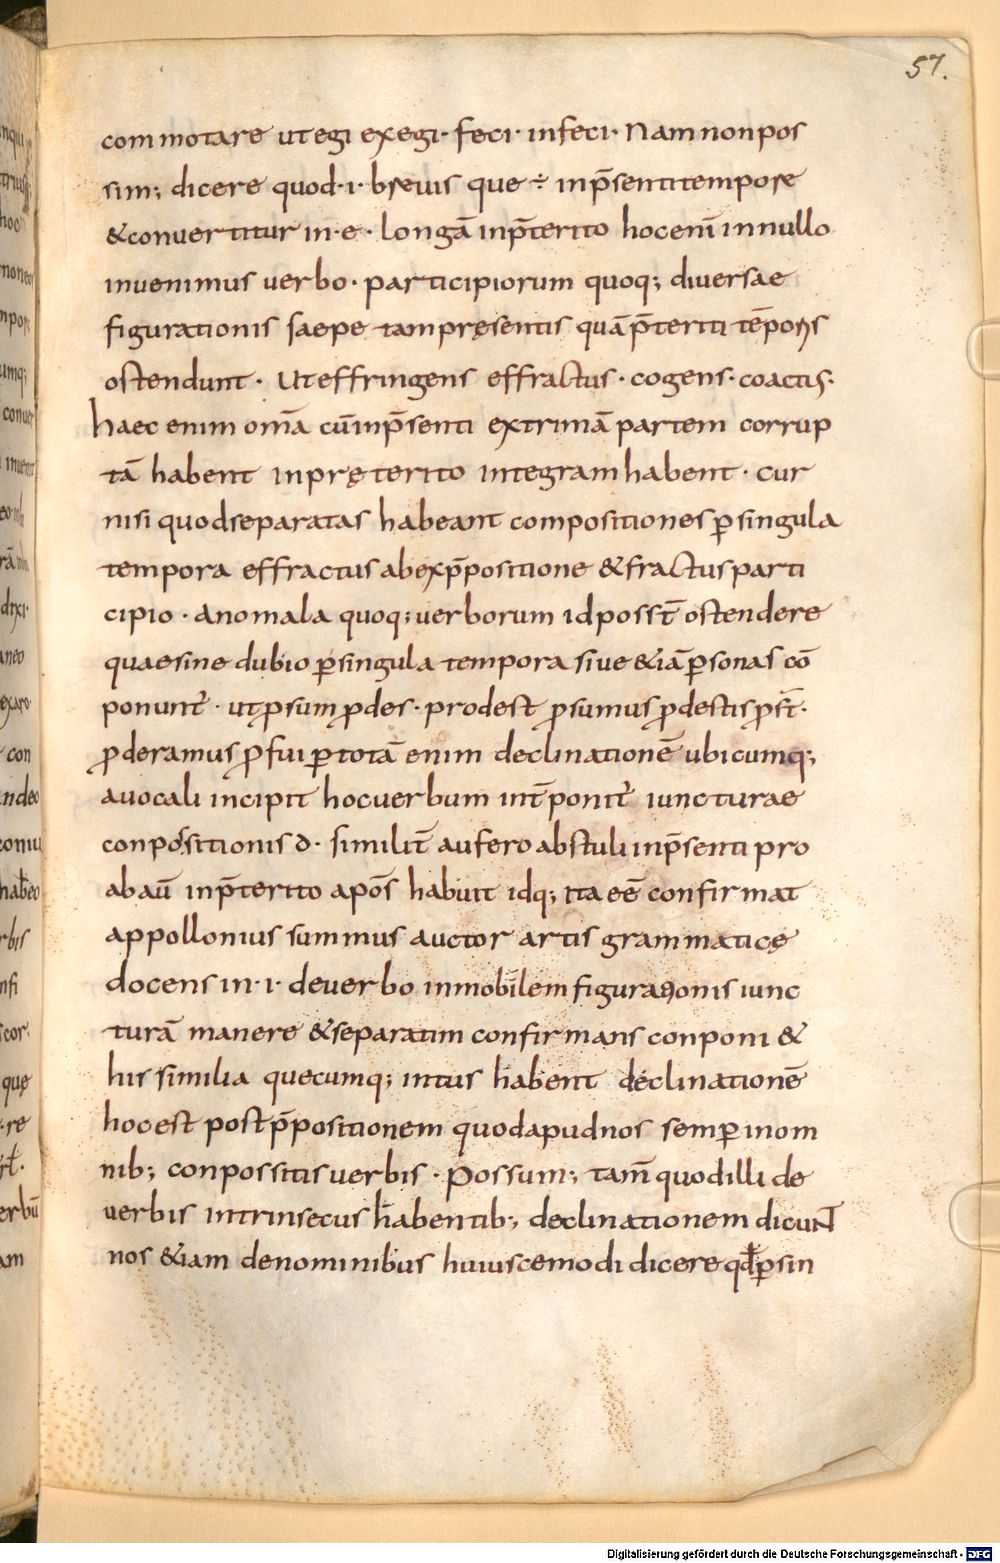 57.
commotare ut egi exegi· feci· infeci· Nam non pos
sim; dicere quod·i· brevis que ÷ inp̄senti tempore
&convertitur in·e· longā inp̄terito hoc enī in nullo
invenimus verbo· participiorum quoq; diversae
figurationis saepe tam presentis quā p̄teriti tēporis
ostendunt· Ut effringens effractus· cogens· coactus·
haec enim om̄a cū inp̄senti extrimā partem corrup
tā habent inpręterito integram habent· cur
nisi quod separatas habeant compositiones ꝑ singula
tempora effractus ab ex p̄positione & fractus parti
cipio· anomala quoq; verborum id posst̄ ostendere
quae sine dubio ꝑ singula tempora sive &iā ꝑsonas cō
ponunt᷑· ut ꝓsum ꝓdes· prodest ꝓsumus ꝓdestis ꝓst̄·
ꝓderamus ꝓfui ꝑ totā enim declinationē ubicumq;
a vocali incipit hoc verbum int̄ponit᷑ iuncturae
conpositionis d· similit̄ aufero abstuli inp̄senti pro
ab aū inp̄terito apōs habuit idq; ita eē confirmat
appollonius summus auctor artis grammaticę
docens in·i· de verbo inmobilem figurationis iunc
turā manere & separatim confirmans conponi &
his similia quecumq; intus habent declinationē
hoc est post p̄positionem quod apud nos semꝑ in om
nib; conpossitis verbis· Possum; tam̄ quod illi de
verbis intrinsecus habentib; declinationem dicuNT
nos &iam de nominibus huiuscemodi dicere qđ ꝑ sin
Digitalisierung gefördert durch die Deutsche Forschungsgemeinschaft - DFG